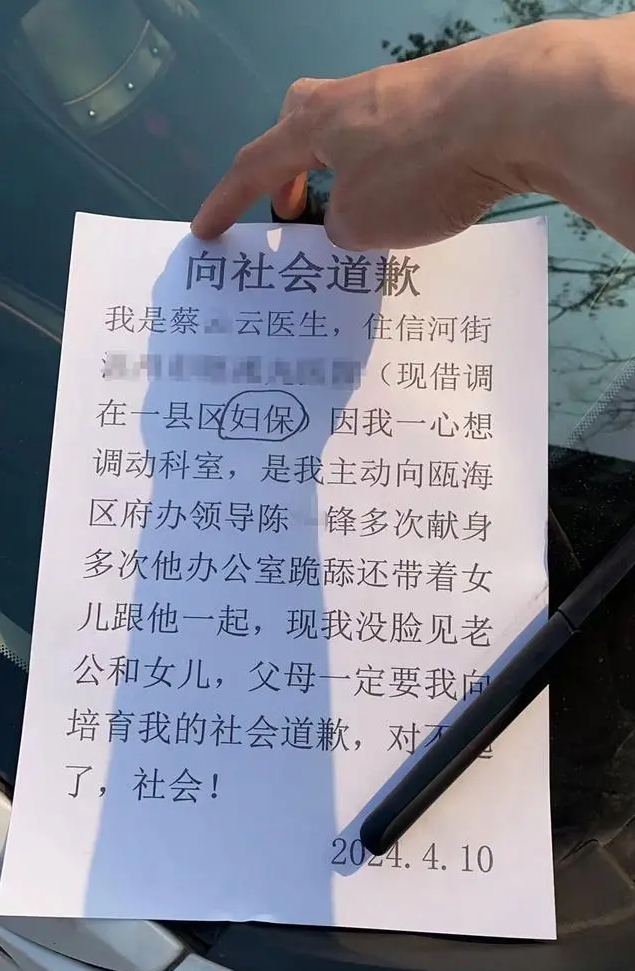 向社会道歉
我是蔡 云医生，住信河街
（现借调
在一县区妇保）因我一心想
调动科室，是我主动向瓯海
区府办领导陈 锋多次献身
多次他办公室跪舔还带着女
儿跟他一起，现我没脸见老
公和女儿，父母一定要我向
培育我的社会道歉，对不起
了，社会！
2024.4.10